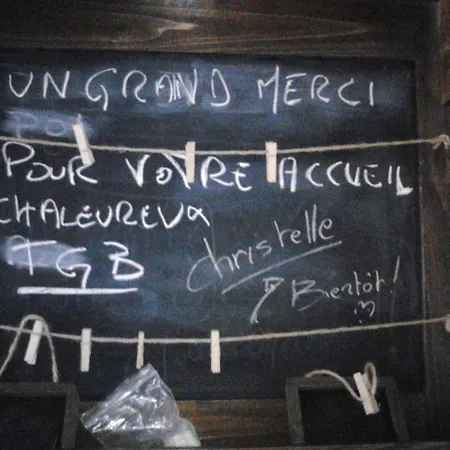 UN GRAND MERCI
POUR VOTRE ACCUEIL
CHALEUREUX
TGB
Christelle
Bientôt !